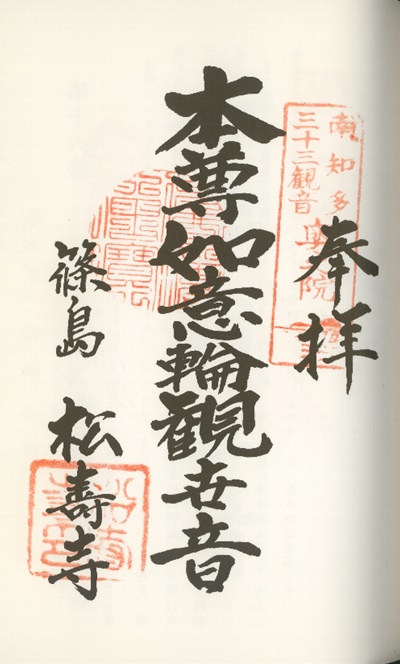 奉拝
南知多
三十三観音
奥院
本尊如意輪観世音
篠島 松壽寺